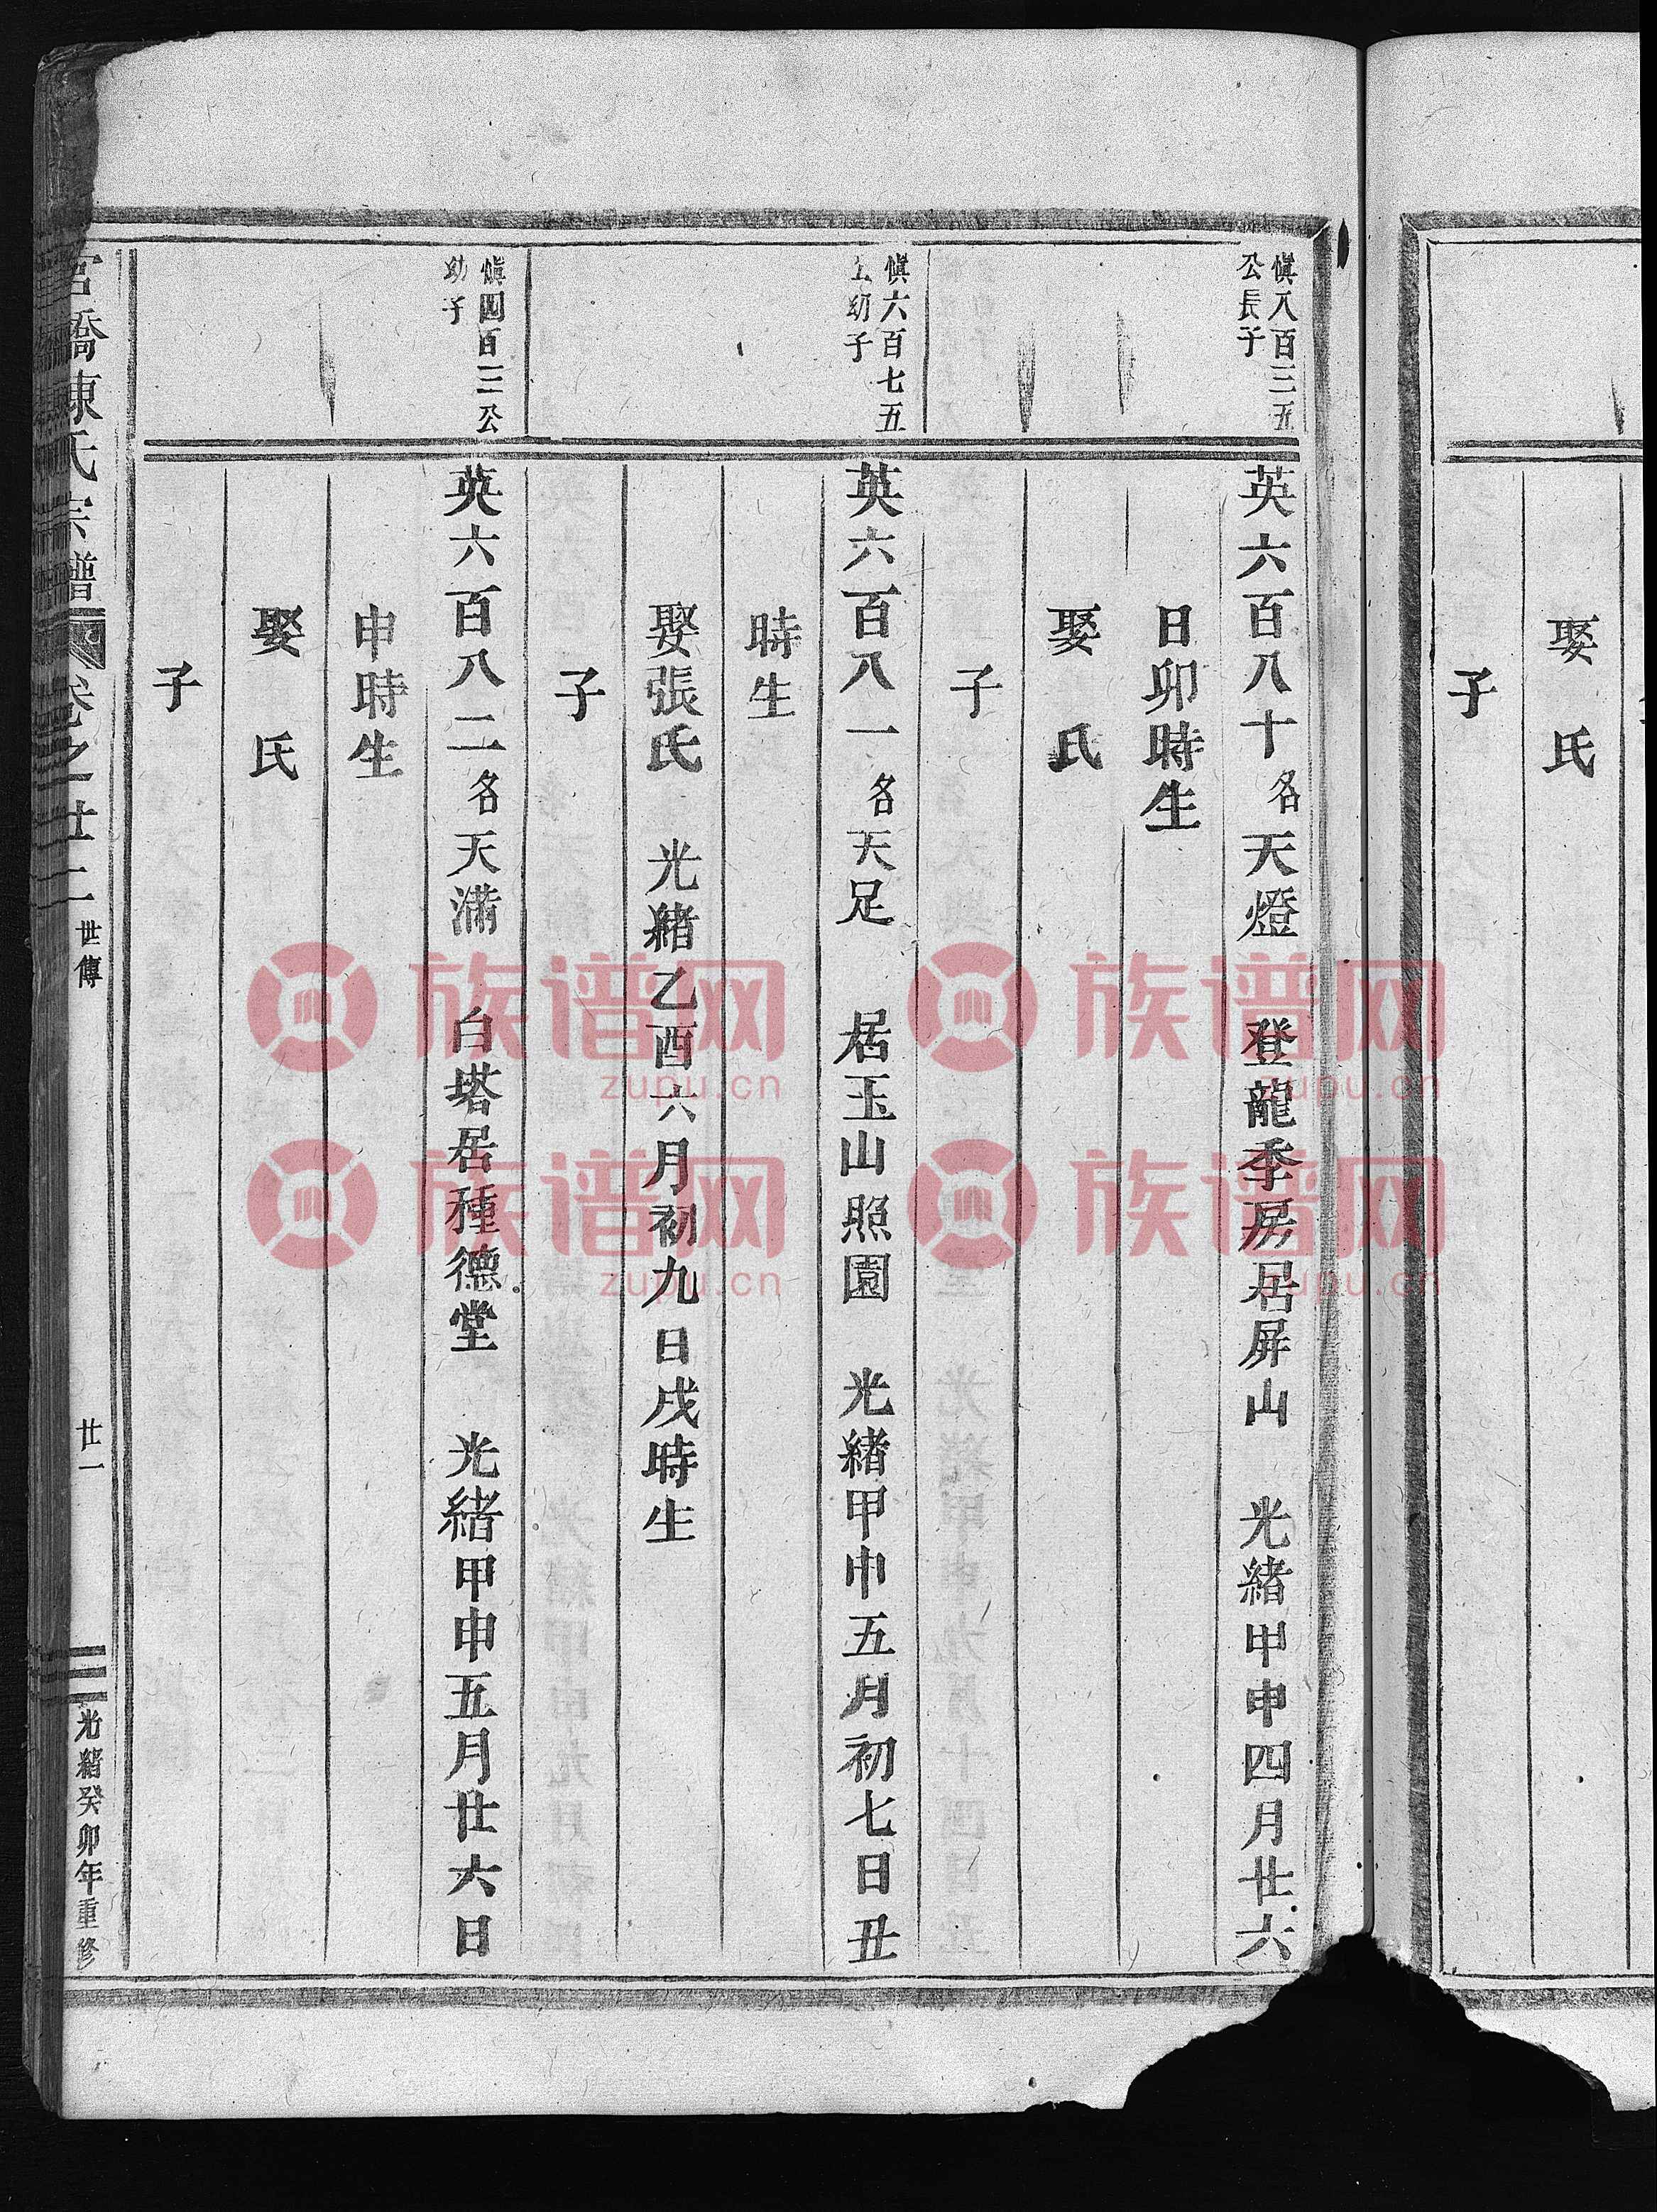 娶　氏
子
愼八百三五
公長子
英六百八十名天燈　登龍季房居屏山　光緒甲申四月廿六
日卯時生
娶　氏
子
愼六百七五
幼子
英六百八一名天足　居玉山照園　光緒甲申五月初七日丑
時生
娶張氏　光緒乙酉六月初九日戌時生
子
愼四百三公
幼子
英六百八二名天滿　白塔居種德堂　光緒甲申五月廿六日
申時生
娶　氏
子
宮橋陳氏宗譜　卷之廿二　世傳　廿一　光緒癸卯年重修
族谱网
zupu.cn
族谱网
zupu.cn
族谱网
zupu.cn
族谱网
zupu.cn